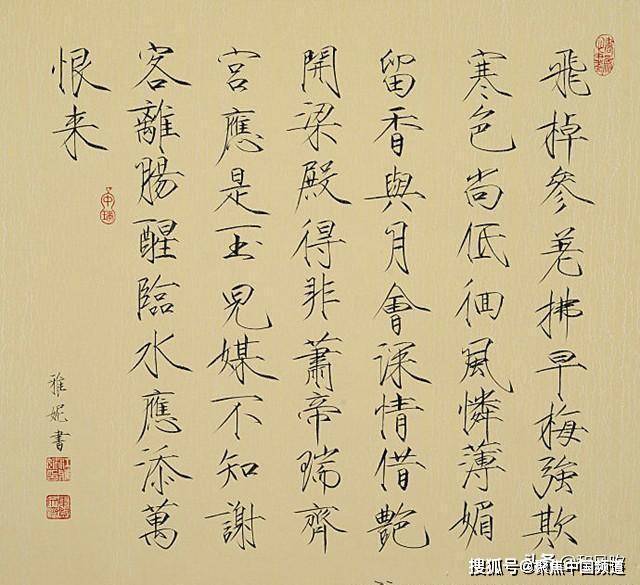 飛棹參差拂早梅強欺
寒色尚低徊風憐薄媚
留香與月會深情借艷
開梁殿得非蕭帝瑞齊
宮應是玉兒媒不知謝
客離腸醒臨水應添萬
恨来
雅妮書
搜狐号@聚焦中国频道